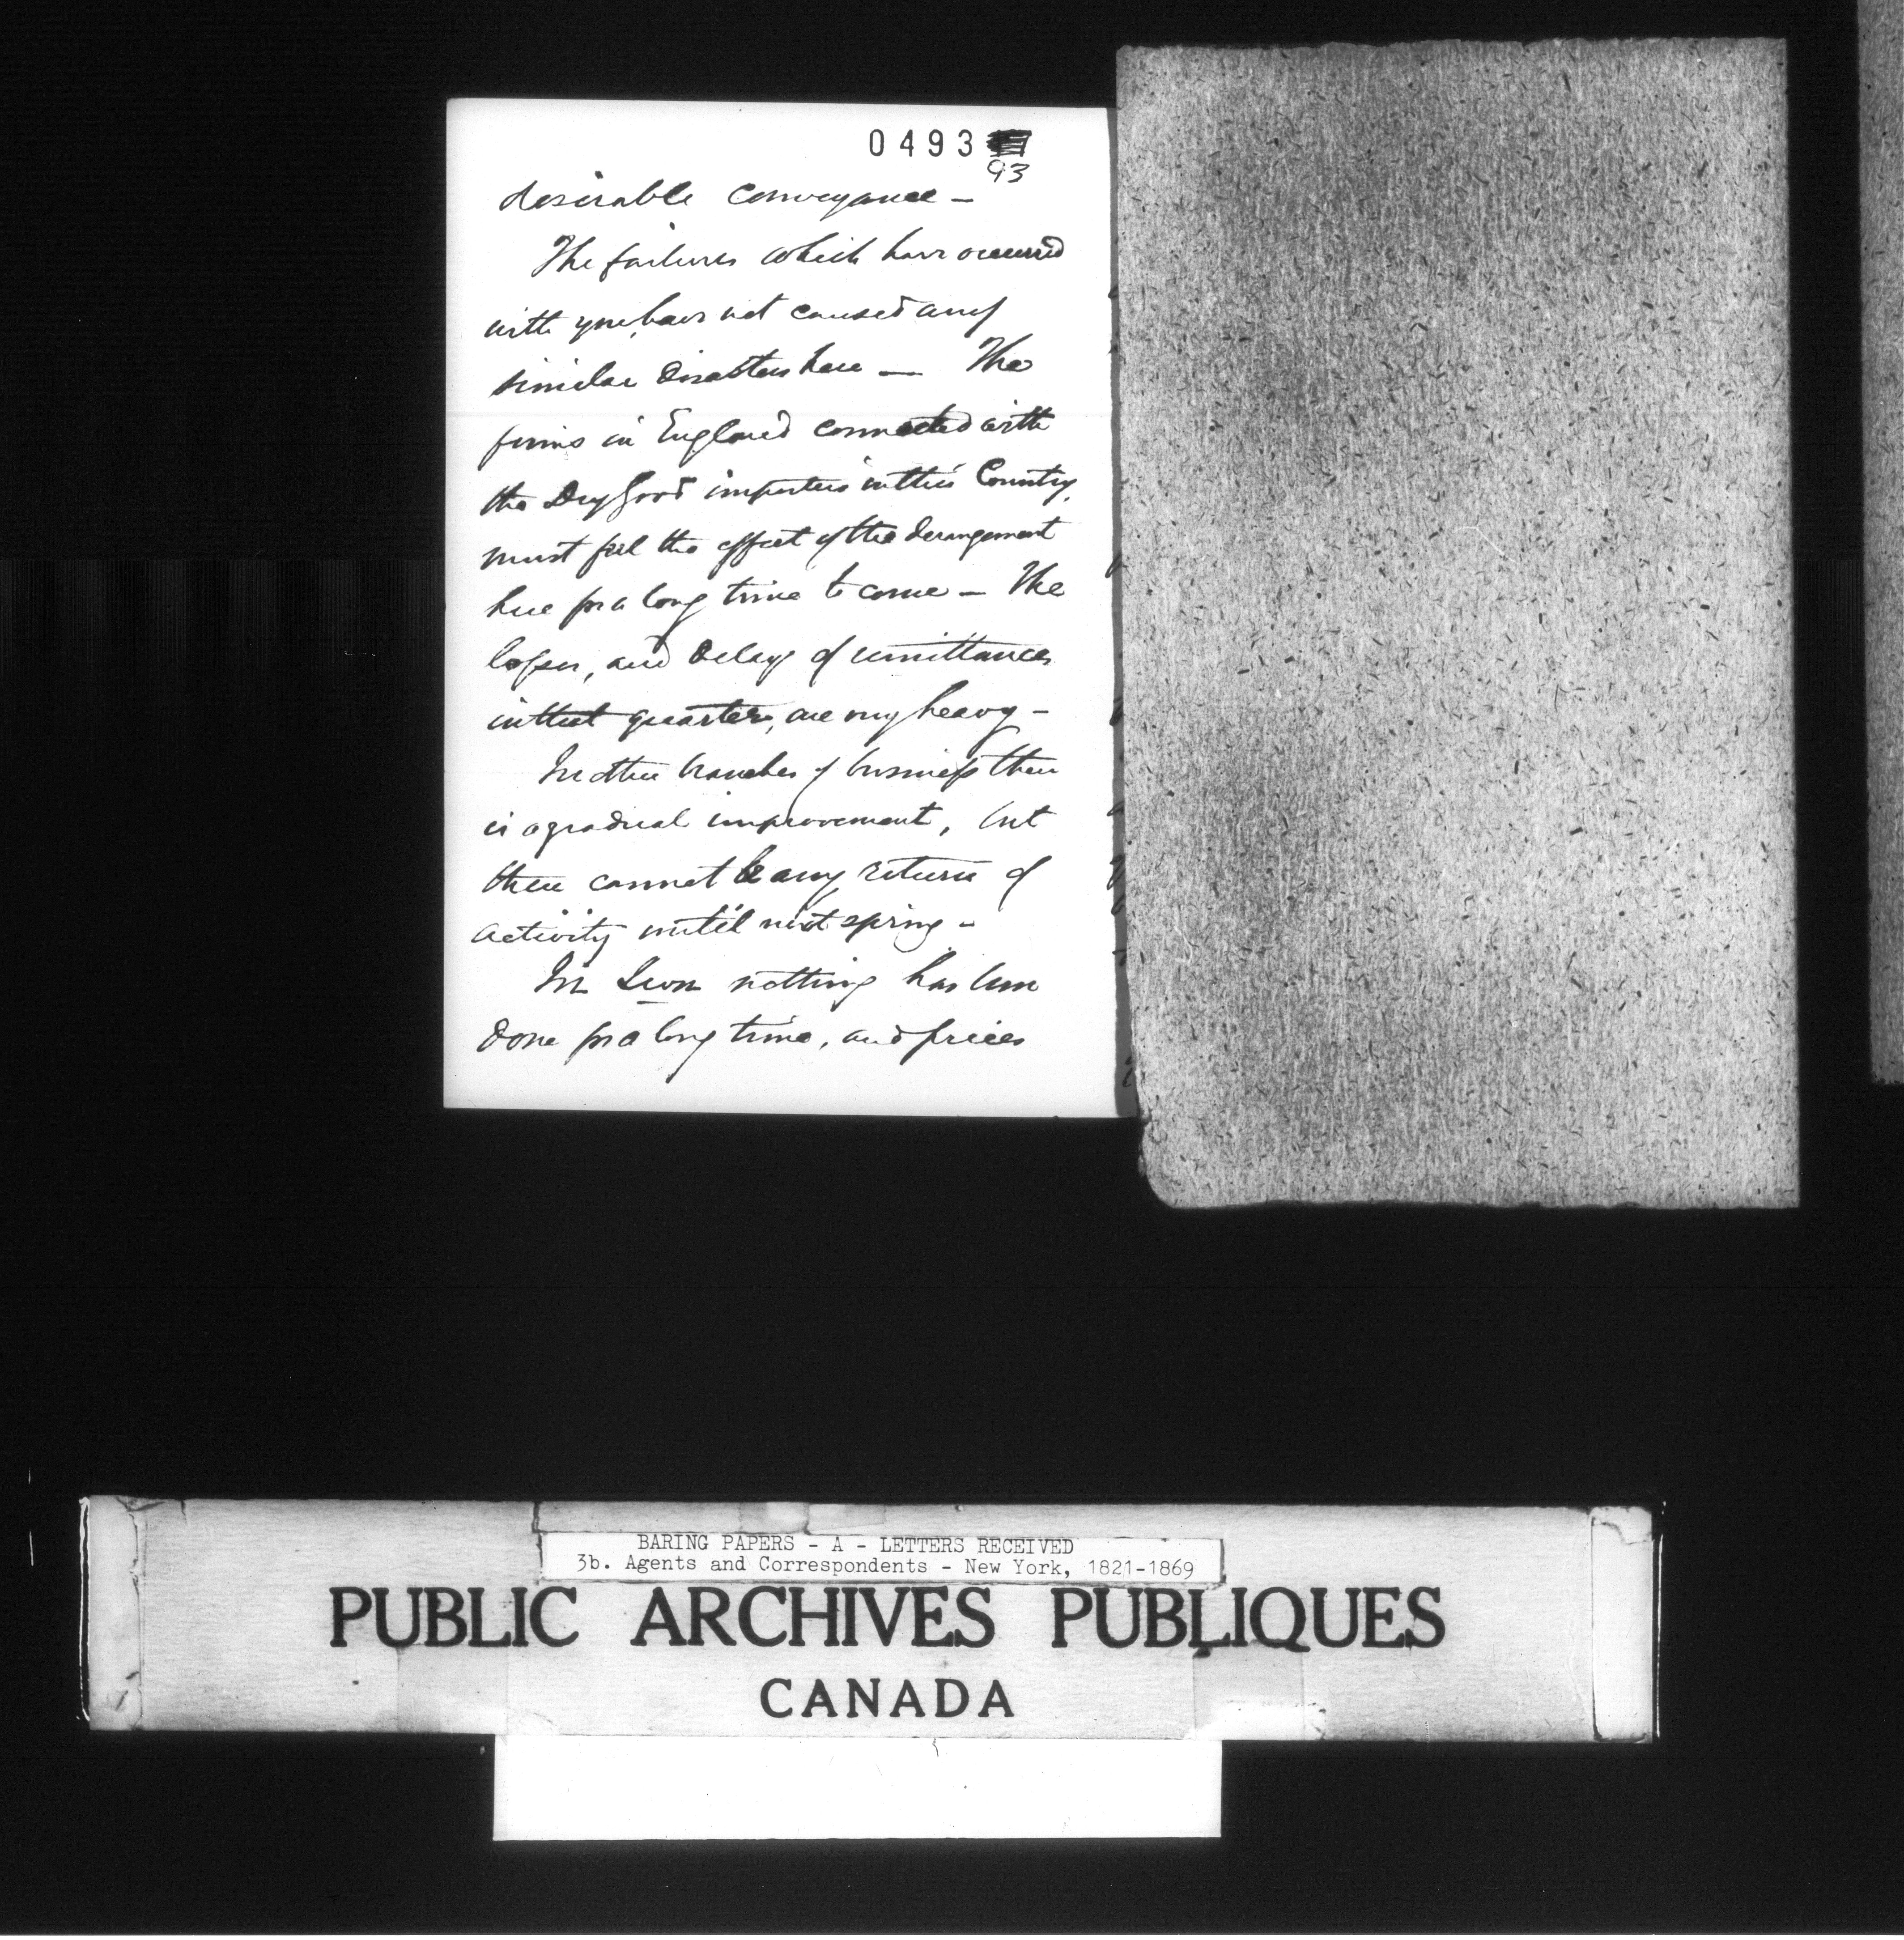 0493
93
desirable conveyance -
The failures which have occurred
with you, have not caused any
similar disasters here - The
firms in England connected with
the Dry Good importers in this Country,
must feel the effect of the derangement
here for a long time to come - The
losses, and delays of remittances
in that quarter, are very heavy -
In other branches of business there
is a gradual improvement, but
there cannot be any return of
activity until next spring -
In Iron nothing has been
done for a long time, and prices
BARING PAPERS - A - LETTERS RECEIVED
3b. Agents and Correspondents - New York, 1821-1869
PUBLIC ARCHIVES PUBLIQUES
CANADA